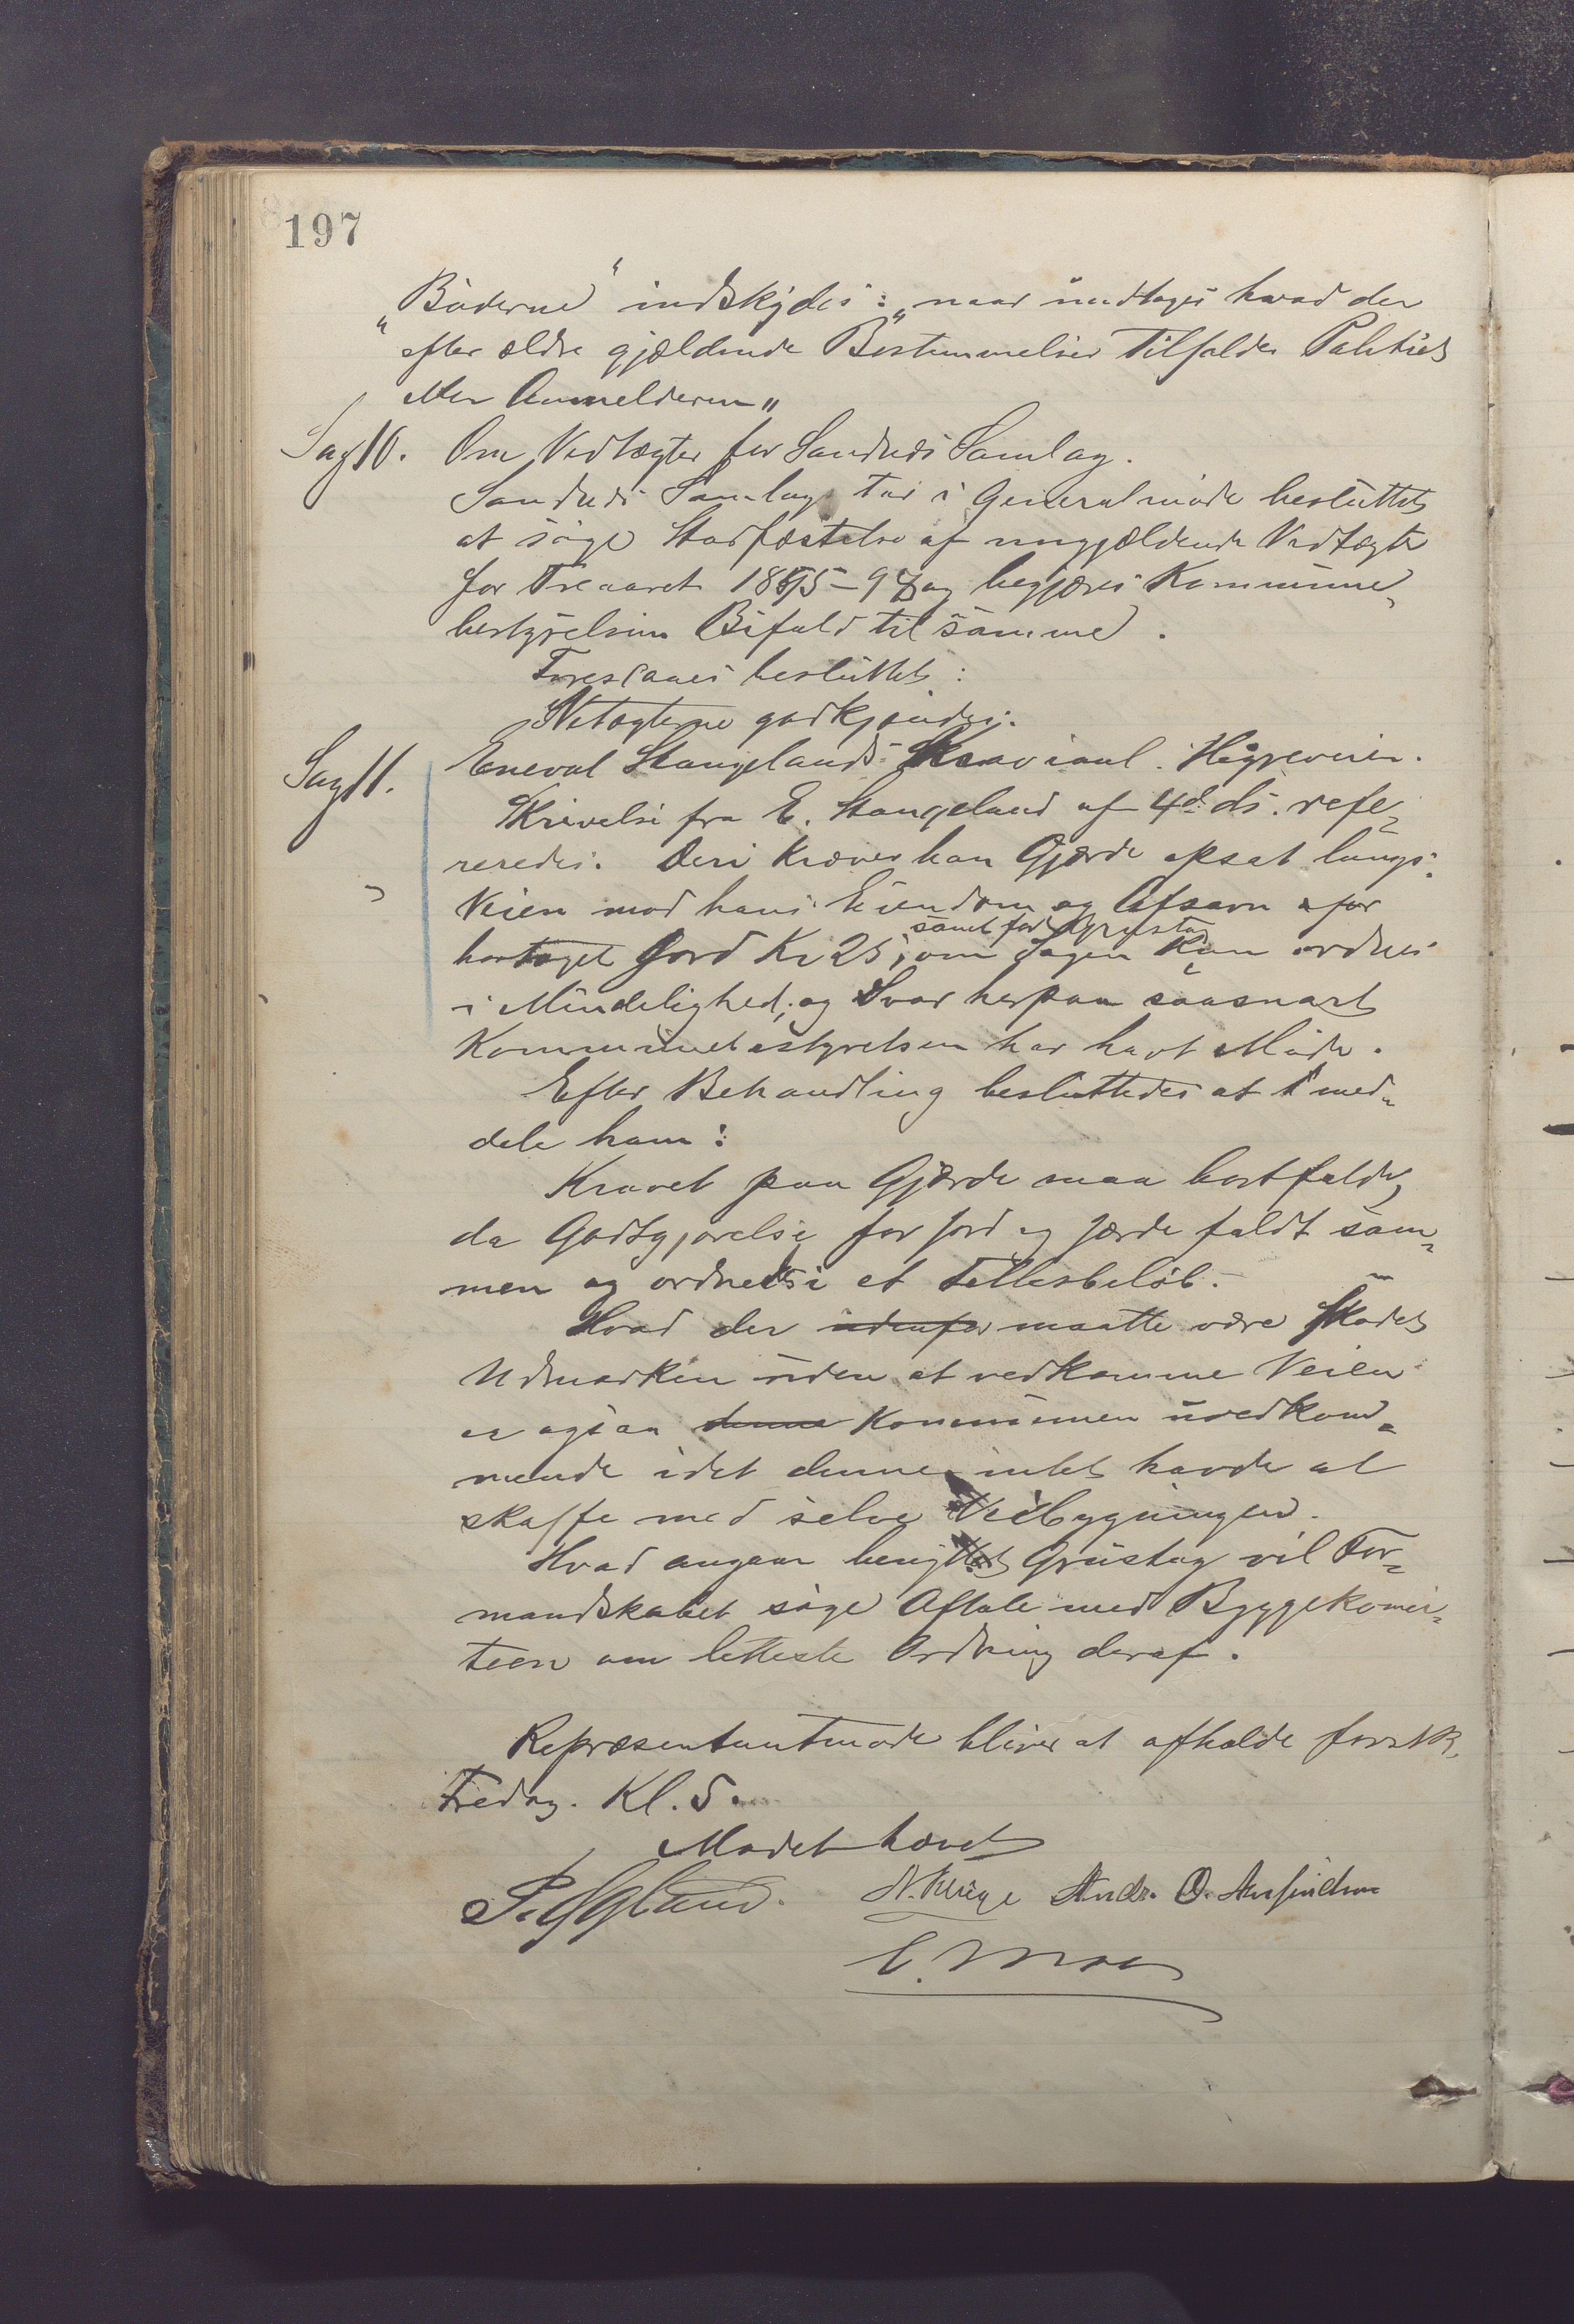 197
„Böderne“ indskydes: „naar undtages hvad der
efter ældre gjældende Bestemmelser tilfalder Politiet
eller Anmelderen„
Sag 10. Om Vedtægter for Sandnes Samlag.
Sandnes Samlag har i Generalmöde besluttet
at söge Stadfæstelse af nugjældende Vedtægter
for Treaaret 1895-97 og begjæres Kommune„
bestyrelsens Bifald til samme.
Foreslaaes besluttet:
Vetægterne godkjendes.
Sag 11. Eneval Stangelands Krav i anl. Högreveien.
Skrivelse fra E. Stangeland af 4de ds. refe„
reredes. Deri kræver han Gjærde opsat langs
Veien mod hans Eiendom og Afsavn for
samt for Grustag
borttaget Jord Kr 25, om Sagen kan ordnes
i Mindelighed, og Svar herpaa saasnart
Kommunebestyrelsen har havt Möde.
Efter Behandling besluttedes at med„
dele ham:
Kravet paa Gjærde maa bortfalde,
da Godtgjørelse for Jord og Jærde faldt sam„
men og ordnedes i et Fellesbeløb.
Hvad der udenfor maatte være skadet
Udmarken uden at vedkomme Veien
er ogsaa denne Kommunen uvedkom„
mende idet denne intet havde at
skaffe med selve Veibygningen.
Hvad angaar benyttet Grustag vil For„
mandskabet söge Aftale med Byggekomi„
teen om letteste Ordning deraf.
Repræsentantmøde bliver at afholde førstk.
Fredag. Kl. 5.
Mødet hævet
P. Eggland. N. Kluge Andr. O. Aufindsen
E. Moe